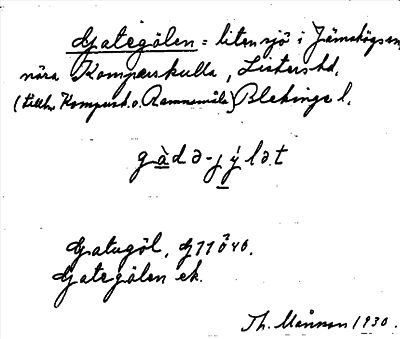 Gategölen = liten sjö i Jämshögs sn,
nära Kompaskulla, Listers hd,
(tillh. Kompask. o. Rammomåla) Blekinge l.
gàdə-jýlət
Gatugöl, G 11 ö 40.
Gategölen ek.
Th. Månsson 1930.